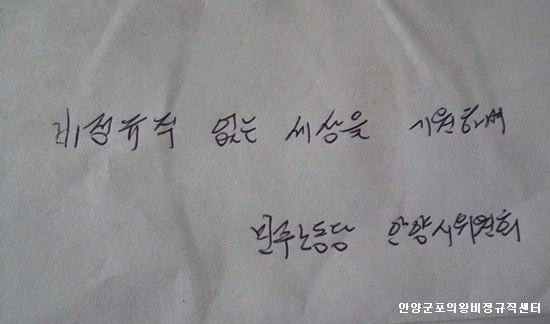 비정규직 없는 세상을 기원하며
민주노동당 안양시위원회
안양군포의왕비정규직센터